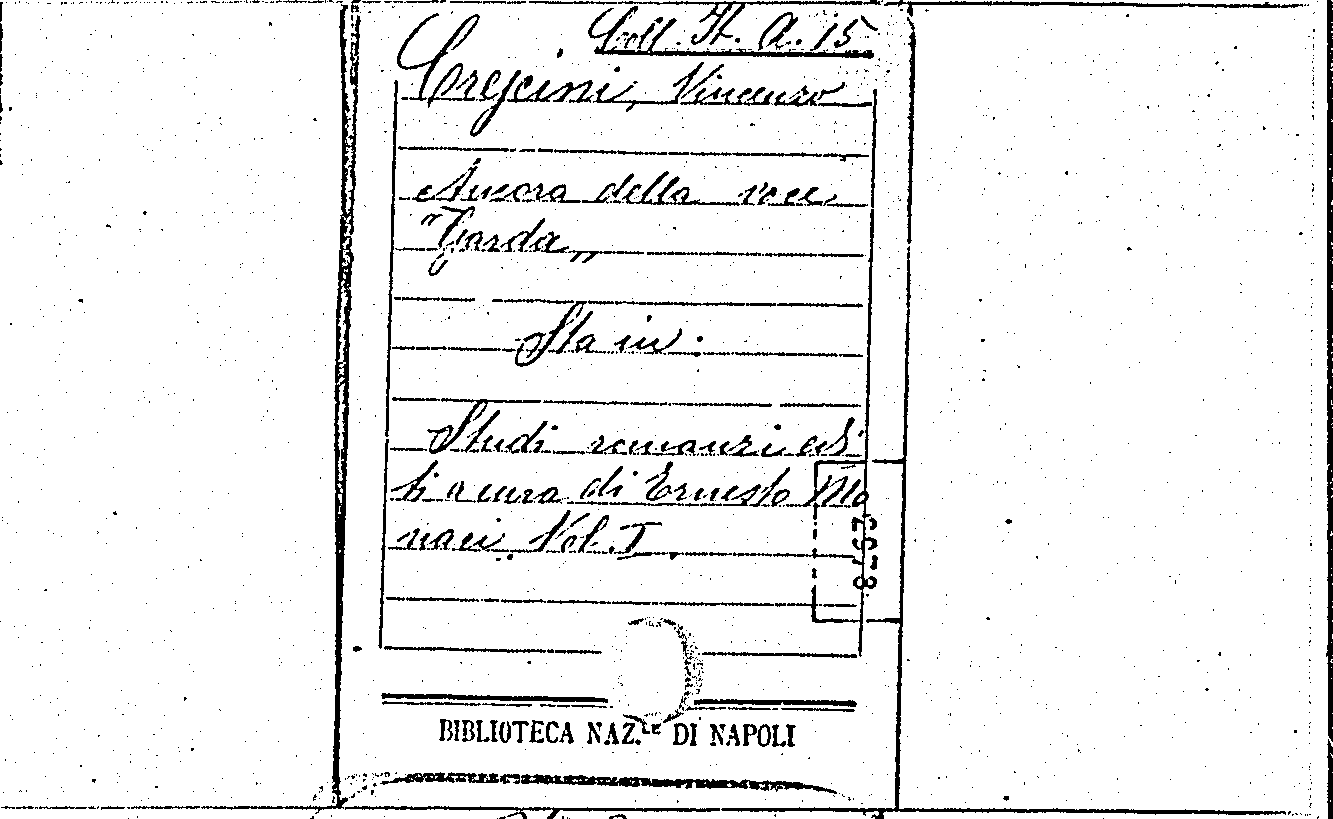 Coll. It. A. 15
Crescini, Vincenzo
Ancora della voce
"Garda„
Sta in:
Studi romanzi edi
ti a cura di Ernesto Mo
naci. Vol. I.
BIBLIOTECA NAZ.LE DI NAPOLI